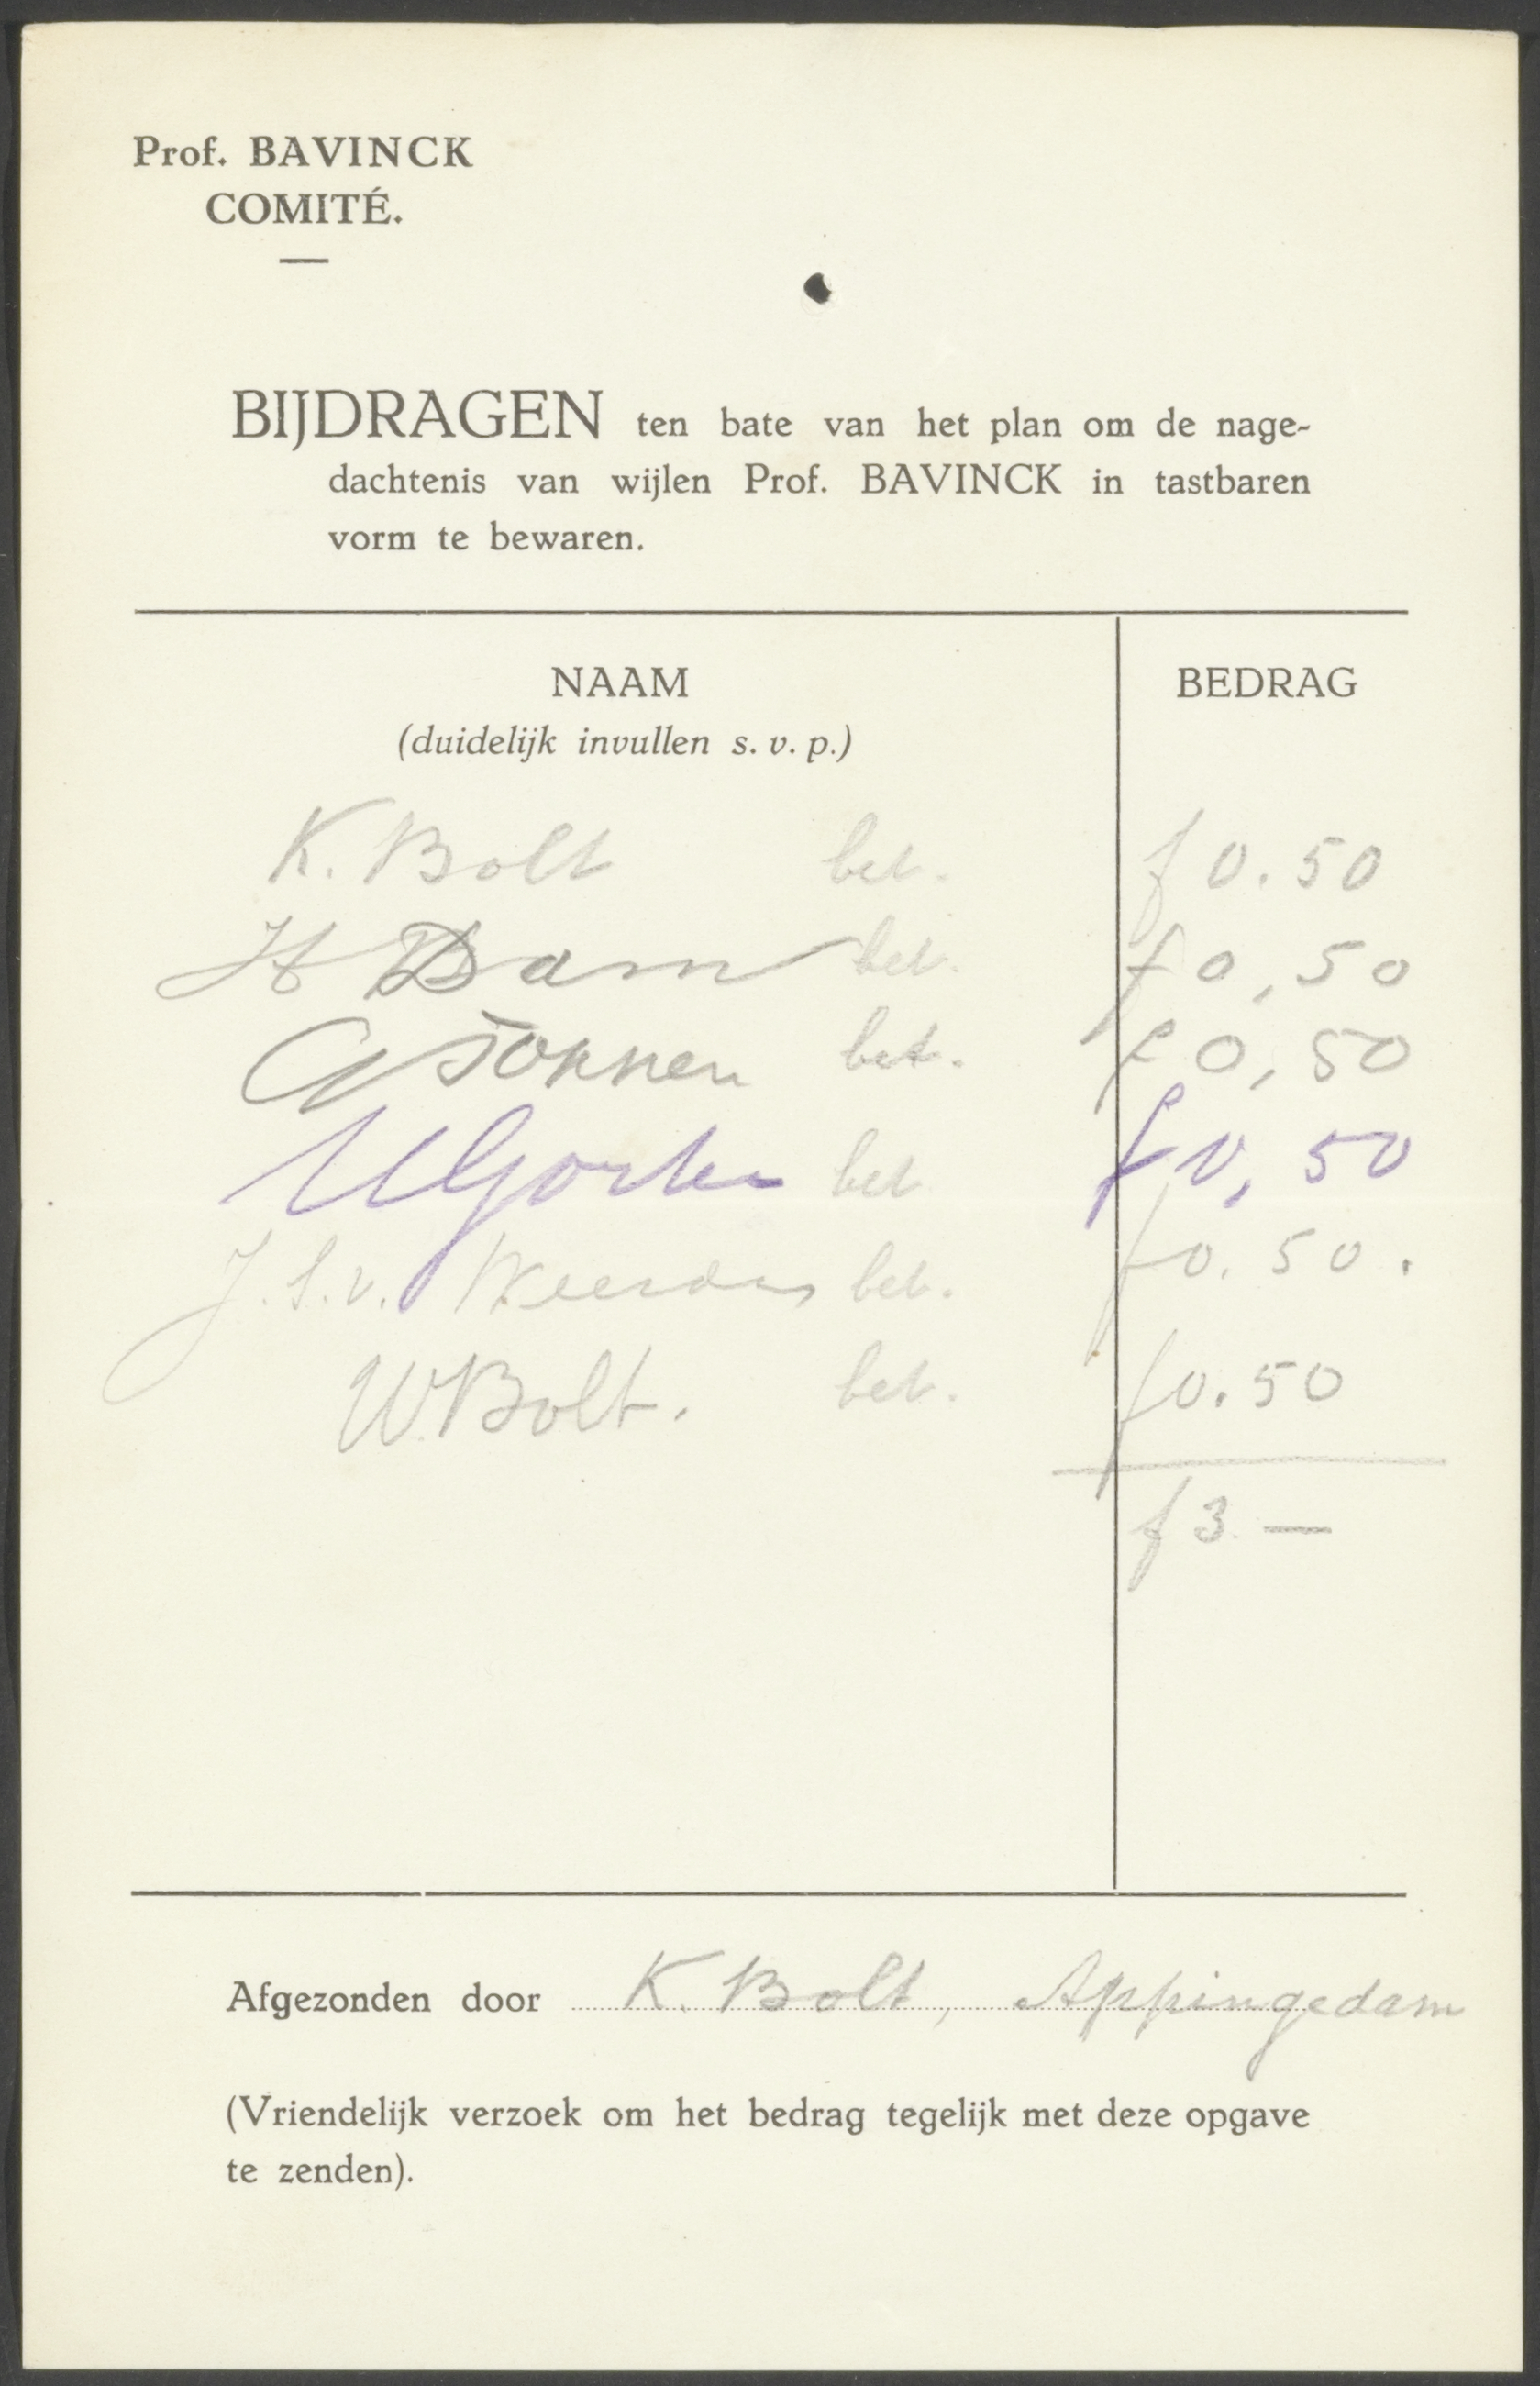 Prof. BAVINCK
COMITÉ.
BIJDRAGEN ten bate van het plan om de nage-
dachtenis van wijlen Prof. BAVINCK in tastbaren
vorm te bewaren.
NAAM BEDRAG
(duidelijk invullen s. v. p.)
K. Bolt bet. f 0.50
H Dam bet. f 0,50
bet. f 0,50
bet f 0,50
J. S. v. Weerden bet. f 0.50.
W. Bolt. bet. f 0.50
f 3 —
Afgezonden door K. Bolt, Appingedam
(Vriendelijk verzoek om het bedrag tegelijk met deze opgave
te zenden).